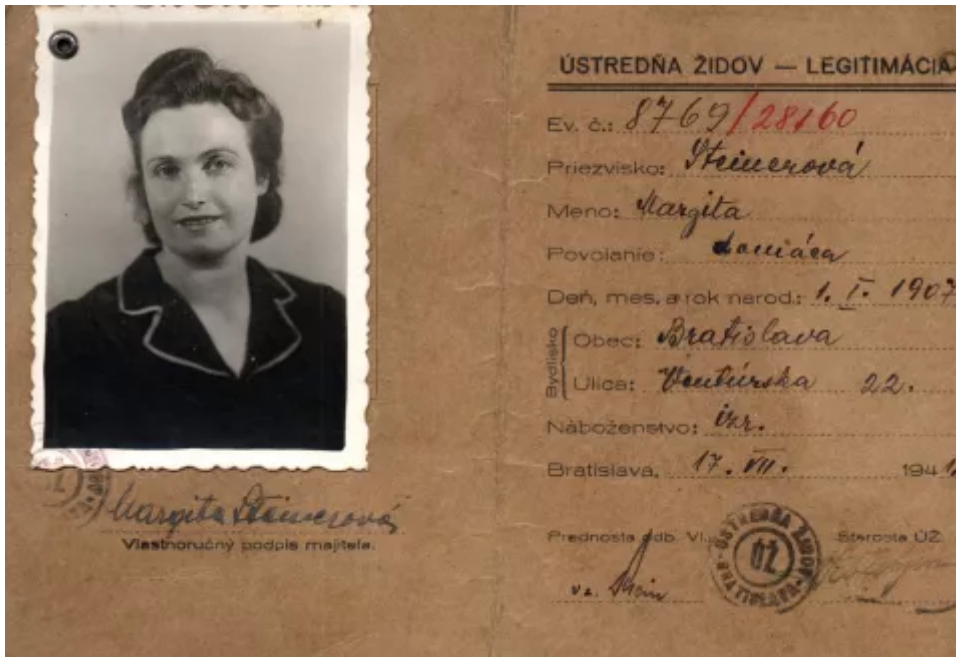 ÚSTREDŇA ŽIDOV — LEGITIMÁCIA
Ev. č.: 8769/28160
Priezvisko: Steinerová
Meno: Margita
Povolanie: domáca
Deň, mes. a rok narod.: 1. I. 1907
Bydlisko
Obec: Bratislava
Ulica: Ventúrska 22.
Náboženstvo: izr.
Bratislava, 17. VII. 1941.
Margita Steinerová
Vlastnoručný podpis majiteľa.
Prednosta odb. VI.
Starosta ÚŽ.
ÚSTREDŇA ŽIDOV
ÚŽ
BRATISLAVA